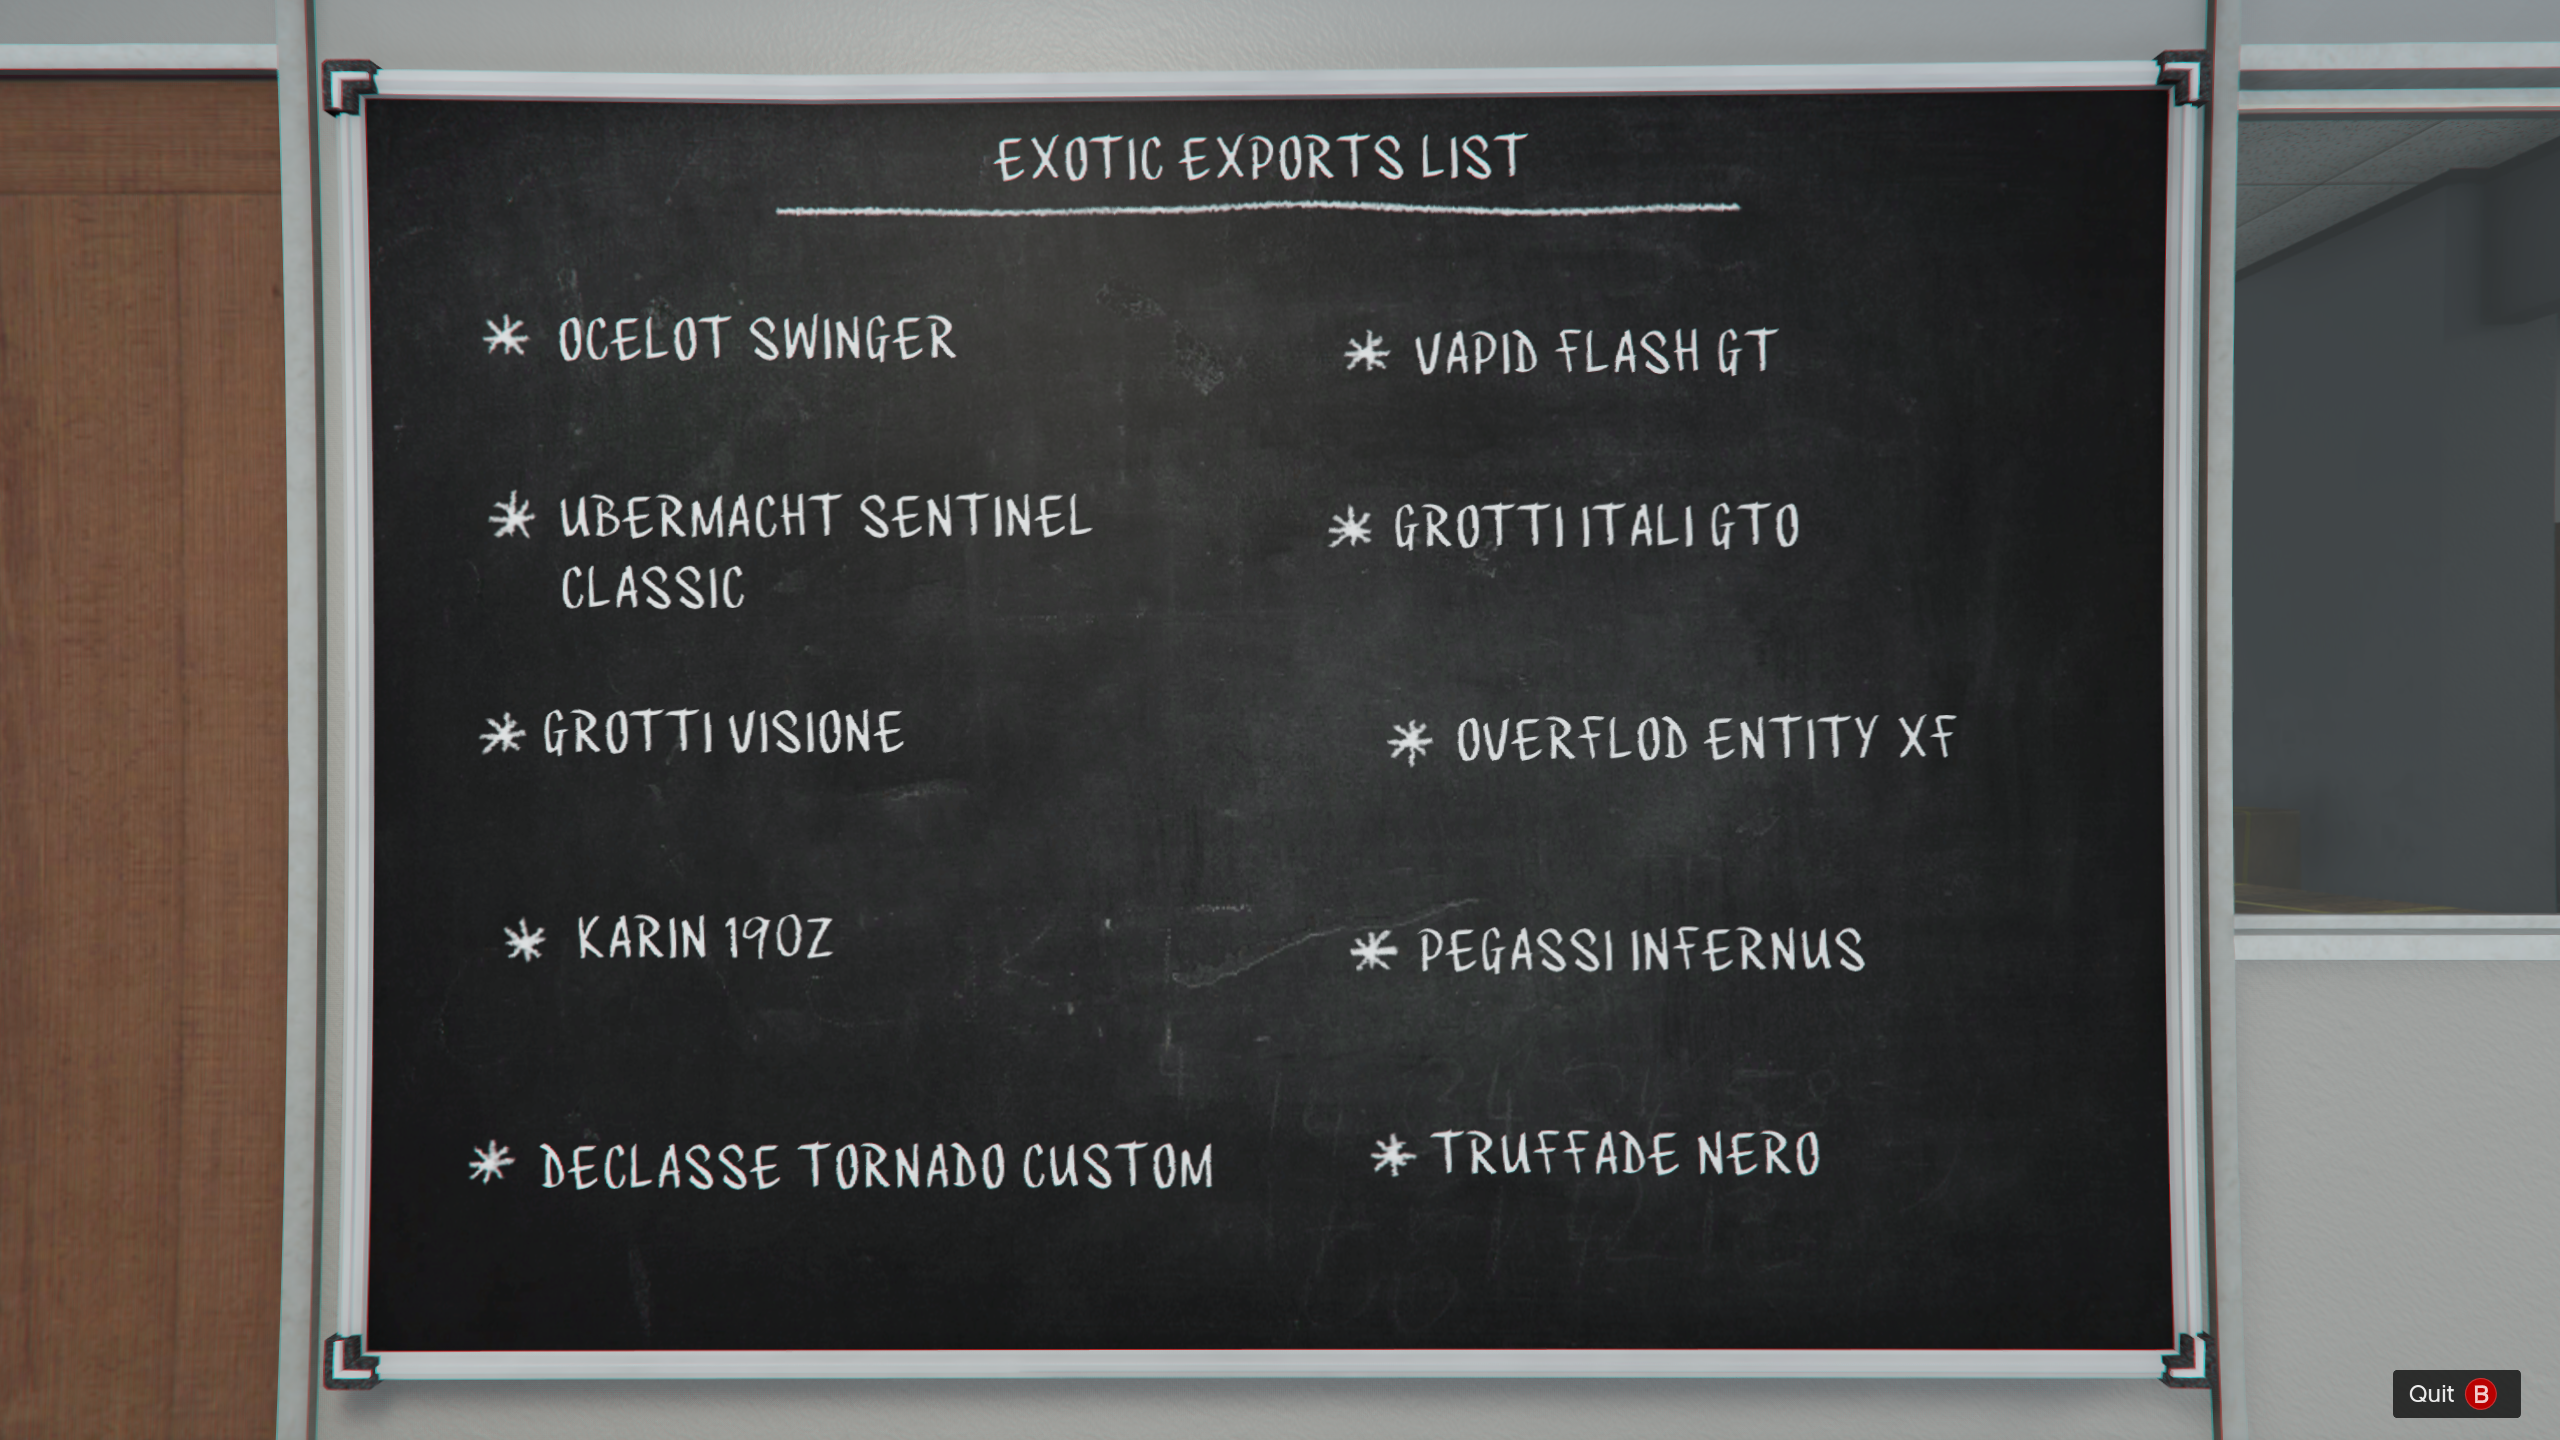 EXOTIC EXPORTS LIST
* OCELOT SWINGER
* UBERMACHT SENTINEL
CLASSIC
* GROTTI VISIONE
* KARIN 190Z
* DECLASSE TORNADO CUSTOM
* VAPID FLASH GT
* GROTTI ITALI GTO
* OVERFLOD ENTITY XF
* PEGASSI INFERNUS
* TRUFFADE NERO
Quit B